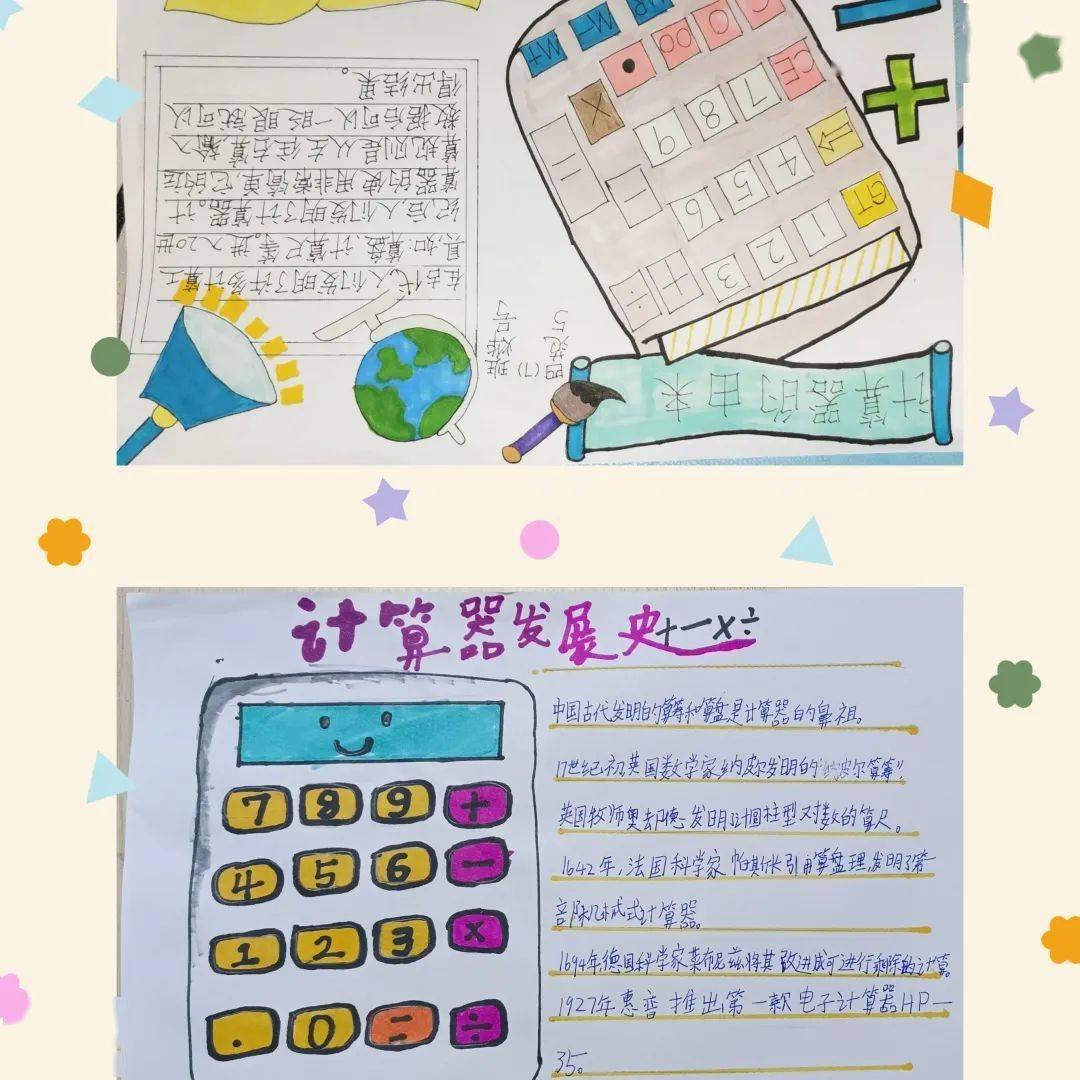 计算器的由来
四(1)班
范烨
5号
在古代人们发明了许多计算工
具,如:算盘、计算尺等。进入20世
纪后,人们发明了计算器。计
算器的使用非常简单,它的运
算规则是从左往右算,输入
数据后可以一眨眼就可以
得出结果。
GT 1 2 3 + ÷
4 5 6 −
CE 7 8 9 × =
C 0 00 •
M− M+
+ −
计算器发展史+−×÷
7 8 9 +
4 5 6 −
1 2 3 ×
. 0 = ÷
中国古代发明的算筹和算盘是计算器的鼻祖。
17世纪初,英国数学家纳皮尔发明的"纳皮尔算筹",
英国牧师奥却德发明计圆柱型对数的算尺。
1642年,法国科学家帕斯卡引用算盘理,发明了第
一部机械式计算器。
1694年,德国科学家莱布尼兹将其改进成可进行乘除的计算。
1927年惠普推出第一款电子计算器HP一
35。